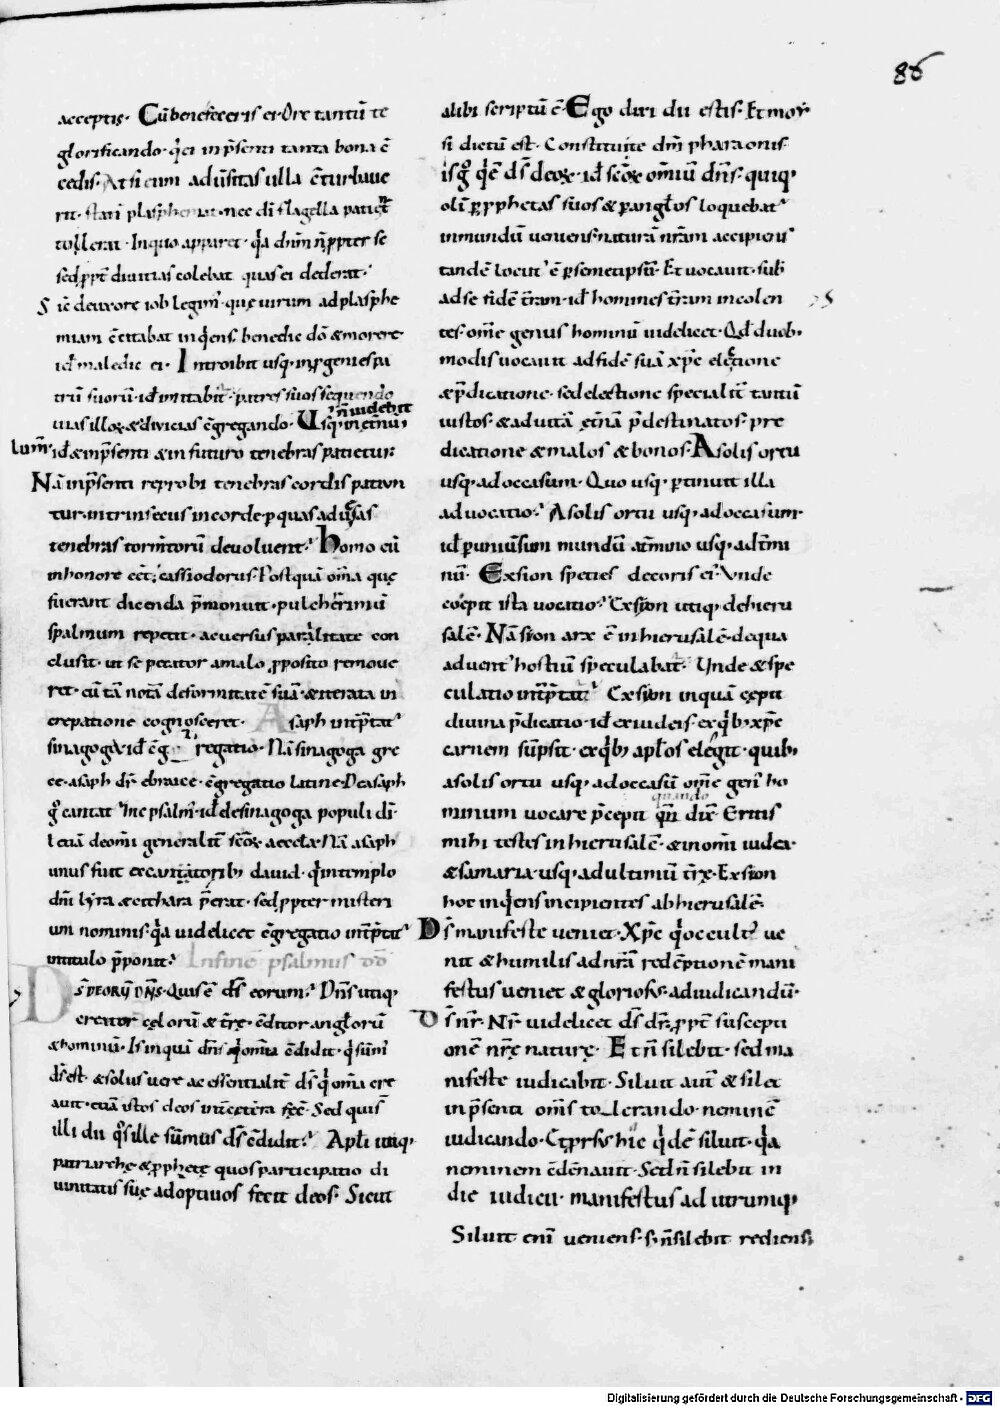 86
acceptis. Cū benefeceris ei. Dr̄e tantū te
glorificando. qͥ ei in p̄senti tanta bona c̄
cedis. At si eum aduersitas ulla c̄turbaue
rit. statī plasphemat. nec dī flagella patient̄
tollerat. In quo apparet. qͣa dnm̄ n̄ ppter se
sed ppt̄ diuitias colebat quas ei dederat.
Sic de uxore iob legim̄. quę uirum ad plasphe
miam c̄citabat inqͥens. benedic dō & morere.
id ē maledic ei. Introibit usq; in pgenies pa
trū suorū. id ē imitabit̄. patres suos sequendo
uias illoꝝ. & diuicias c̄gregando. Usq; in etn̄ū n̄ uidebit
lum̄. id ē & in p̄senti & in futuro tenebras patietur.
Nā in p̄senti reprobi tenebras cordis patiun
tur. intrinsecus in corde. p quas ad uersas
tenebras torm̄torū deuoluent̄. Homo cū
in honore eēt. cassiodorus. Postquā om̄a quę
fuerant dicenda p̄monuit. pulcherrimū
spalmum repetit. ac uersus paralitate con
clusit. ut se peccator a malo pposito remoue
ret. cū tā notā deformitatē suā & iterata in
crepatione cognosceret. Asaph int̄ptat̄
sinagoga. id ē c̄gregatio. Nā sinagoga gre
ce. asaph dr̄ ebraice. c̄gregatio latine. De asaph
gͦ cantat hic psalm̄. id ē de sinagoga populi dī.
& eciā de om̄i generalit̄ sc̄oꝝ aeccla. Nā asaph
unus fuit ex cantatoribꝫ dauid. qͥ in templo
dn̄i lyra & cithara p̄erat. sed ppter misteri
um nominis. qͣa uidelicet c̄gregatio int̄ptat̄
in titulo p̄ponit̄. In fine psalmus dd̄
DS̄ DEORŪ DN̄S. Quis ē ds̄ eorum? Dn̄s utiq;
creator cęlorū & tr̄ę. c̄ditor anglorū
& hominū. Is inquā dn̄s qͥ om̄ia c̄didit. qͥ sum̄
ds̄ est. & solus uere ac essentialit̄ ds̄ qͥ om̄a cre
auit. etiā istos deos
illi dii qͦs ille summus ds̄ c̄didit? Apłi utiq;
patriarchę & pphetę quos participatio di
uinitatis suę adoptiuos fecit deos. Sicut
alibi scriptū ē. Ego dixi dii estis. Et moy
si dictū est. Constitui te dm̄ pharaonis.
is gͦ qͥ ē ds̄ deoꝝ. id ē sc̄oꝝ omniū dn̄s. quiq;
olī p pphetas suos & p angłos loquebat̄
in mundū ueniens. naturā nr̄am accipiens
tandē locut̄ ē p semetipsū. Et uocauit. sub
ad se fidē tr̄am. id ē homines tr̄am incolen
tes. om̄e genus hominū uidelicet. Qd̄ duobꝫ
modis uocauit ad fidē suā xp̄c electione
& p̄dicatione. sed electione specialit̄ tantū
iustos. & ad uitā etn̄ā p̄destinatos. pre
dicatione & malos & bonos. A solis ortu
usq; ad occasum. Quo usq; ptinuit illa
aduocatio? A solis ortu usq; ad occasum.
id ē p uniuersum mundū a t̄mino usq; ad t̄mi
nū. Ex sion species decoris ei. Unde
coepit ista uocatio? Ex sion utiq; de hieru
salē. Nā sion arx ē in hierusalē. de qua
aduent̄ hostiū speculabat̄. Unde & spe
culatio int̄ptat̄. Ex sion inquā cępit
diuina p̄dicatio. id ē ex iudeis. ex qͥbꝫ xp̄c
carnem sūpsit. ex qͥbꝫ apłos elegit. quibꝫ
a solis ortu usq; ad occasū om̄e gen̄ ho
minum uocare p̄cepit quando dix̄. Eritis
mihi testes in hierusalē. & in om̄i iudea.
& samaria. usq; ad ultimū tr̄ę. Ex sion
hoc inqͥens incipientes ab hierusalē.
Ds̄ manifeste ueniet. Xp̄c qͥ occult̄ ue
nit & humilis ad nr̄ā redēptionē mani
festus ueniet & gloriosꝰ. ad iudicandū.
Ds̄ nr̄. Nr̄ uidelicet ds̄ dr̄. ppt̄ suscepti
onē nr̄ę naturę. Et n̄ silebit. sed ma
nifeste iudicabit. Siluit aut̄ & silet
in p̄senti om̄s tollerando. neminē
iudicando. hic qͥdē siluit. qͣa
neminem c̄dēnauit. Sed n̄ silebit in
die iudicii. manifestus ad utrumq;
Siluit eni ueniens. s; n̄ silebit rediens;
Digitalisierung gefördert durch die Deutsche Forschungsgemeinschaft - DFG